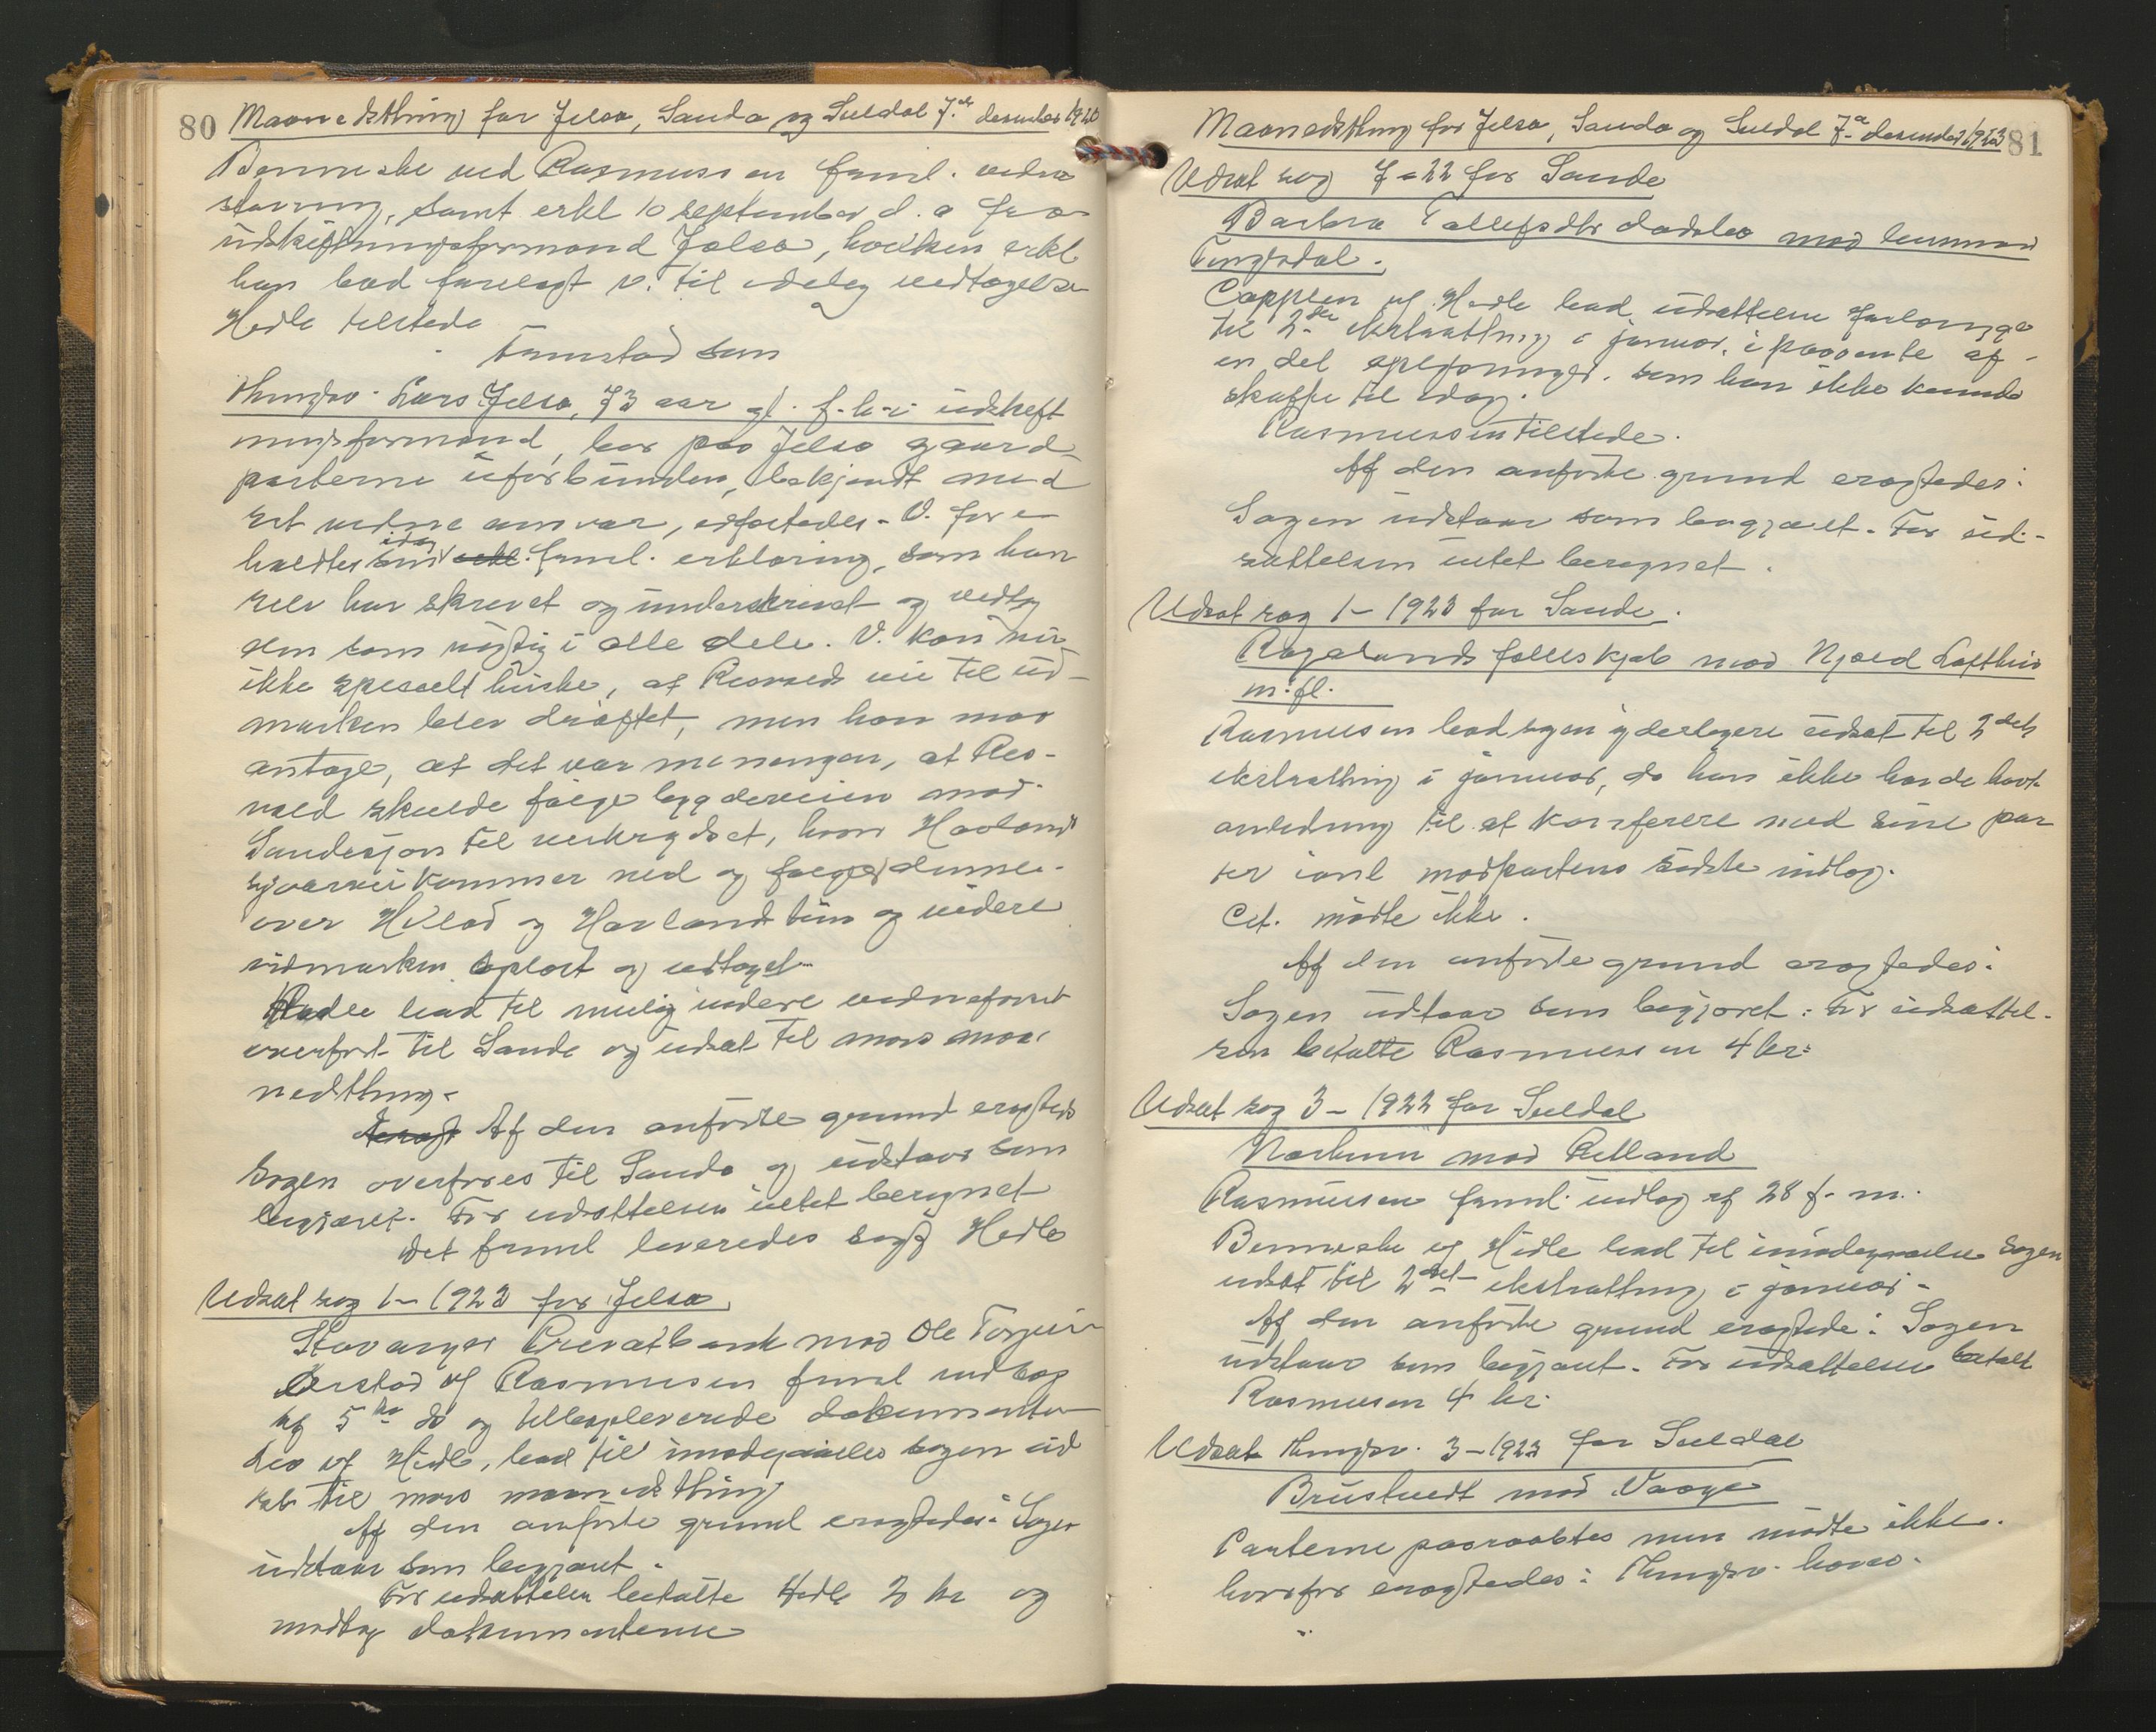 80 Maanedsthing for Jelsa, Sauda og Suldal 7de desember 1923
Bennesbe ved Rasmussen freml. vidne
stævning, samt erkl 10 september d. a fra
udskiftningsformand Jelsa, hvilken erkl
han bad forelagt v. til edelig vedtagelse
Hidle tilstede
Fremstod som
thingsv. Lars Jelsa, 73 aar gl. f. h. i udskift
ningsformand, bor paa Jelsa gaard
parterne uforbunden, bekjendt med
sit vidne ansvar, edfæstedes. V. fore
holdtes idag freml. erklæring, som han
selv har skrevet og underskrevet og vedtog
den som rigtig i alle dele. V. kan nu
ikke specielt huske, at Risvolds vei til ud-
marken blev drøftet, men han maa
antage, at det var meningen, at Ris-
vold skulde følge bygdeveien mod
Sandesjøen til veikrydset, hvor Havlands
kommer ned og følge denne
over og Havlands tun og videre
udmarken Oplæst og vedtaget
Hidle bad til mulig videre vidneførsel
overført til Sauda og udsat til næste maa
nedsthing.
Af den anførte grund eragtedes
Sagen overføres til Sauda og udstaar som
begjæret. For udsættelsen intet beregnet
Det freml leveredes sagf Hidle
Udsat sag 1 - 1923 for Jelsa
Stavanger Privatbank mod Ole
Ørestad Rasmussen freml indlæg
af 5te ds og tilbageleverede dokumenter
Hidle, bad til imødegaaelse sagen ud
sat til næste maanedsthing
Af den anførte grund eragtedes: Sagen
udstaar som begjæret.
For udsættelsen betalte Hidle 2 kr og
modtog dokumenterne
Maanedsthing for Jelsa, Sauda og Suldal 7de desember 1923 81
Udsat sag 7 - 22 for Sauda
Barbra Tollefsdtr mod
Tengesdal.
Cappelen v/ Hidle bad udsættelse forlænget
til 2det ekstrathing i januar, i paavente af
en del oplysninger som han ikke kunde
skaffe til idag.
Rasmussen tilstede.
Af den anførte grund eragtedes:
Sagen udstaar som begjæret. For ud-
sættelsen intet beregnet.
Udsat sag 1 - 1923 for Sauda.
Rogalands fælleskjøb mod Njæld Lofthus
m. fl.
Rasmussen bad sagen yderligere udsat til 2det
ekstrathing i januar, da han ikke havde havt
anledning til at konferere med sine par
ter ianl modpartens sidste indlæg.
Cit. mødte ikke.
Af den anførte grund eragtedes:
Sagen udstaar som begjæret: For udsættel-
sen betalte Rasmussen 4 kr:
Udsat sag 3 - 1922 for Suldal
mod Helland
Rasmussen freml. indlæg af 28 f. m.
Bennesbe v/ Hidle bad til imødegaaelse sagen
udsat til 2det ekstrathing i januar.
Af den anførte grund eragtedes: Sagen
udstaar som begjæret. For udsættelsen betalt
Rasmussen 4 kr.
Udsat thingsv. 3 - 1923 for Suldal
Brustuedt mod Vaage
Parterne paaraabtes men mødte ikke.
hvorfor eragtedes: Thingsv. hæves.